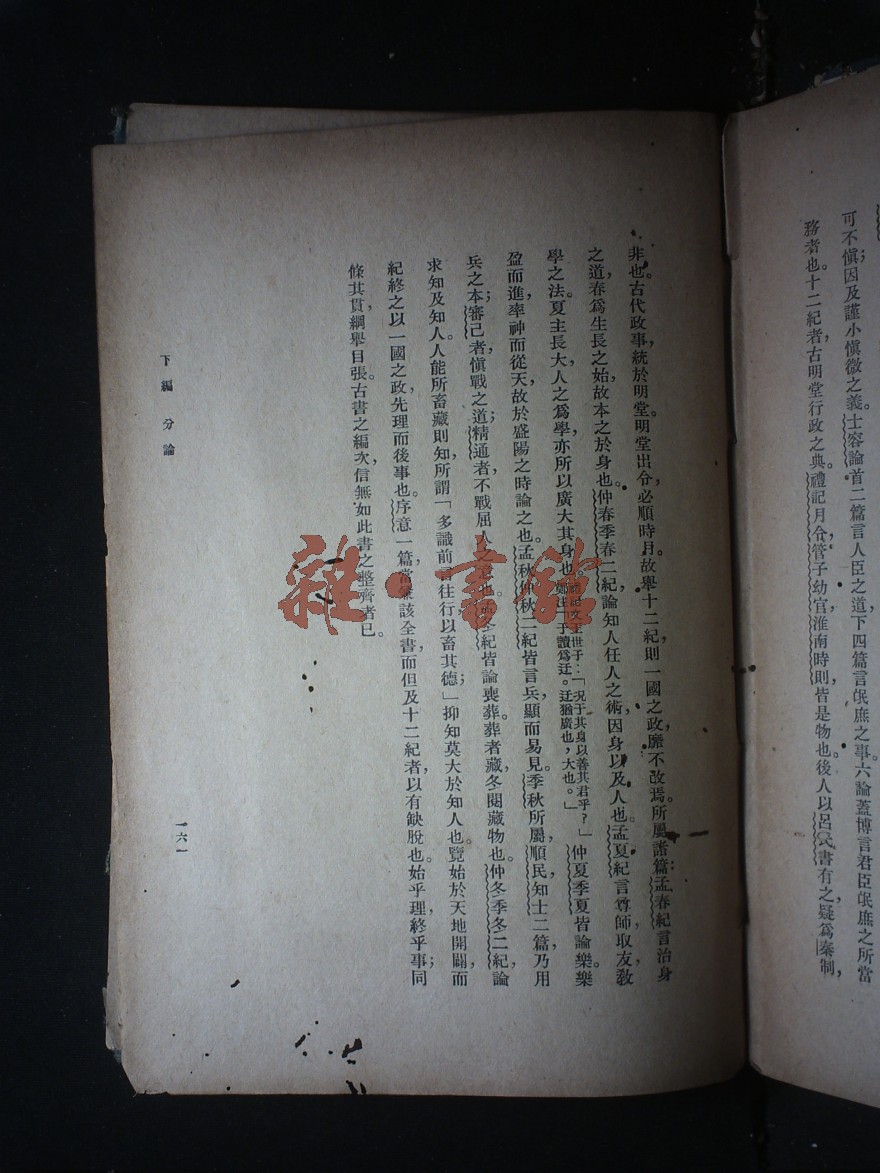 可不愼；因及謹小愼微之義。士容論首二篇言人臣之道，下四篇言氓庶之事。六論蓋博言君臣氓庶之所當
務者也。十二紀者，古明堂行政之典。禮記月令，管子幼官，淮南時則，皆是物也。後人以呂氏書有之，疑爲秦制，
非也。古代政事，統於明堂。明堂出令，必順時月。故舉十二紀，則一國之政，靡不改焉。所屬諸篇：孟春紀言治身
之道，春爲生長之始，故本之於身也。仲春季春二紀，論知人任人之術，因身以及人也。孟夏紀言尊師，取友，敎
學之法。夏主長大，人之爲學，亦所以廣大其身也。禮記文王世子：「況于其身以善其君乎？」鄭注：「于讀爲迂。迂猶廣也，大也。」仲夏季夏皆論樂，樂
盈而進，率神而從天，故於盛陽之時論之也。孟秋仲秋二紀皆言兵，顯而易見。季秋所屬，順民知士二篇，乃用
兵之本；審己者，愼戰之道；精通者，不戰屈人之意也。孟冬紀皆論喪葬。葬者藏，冬閱藏物也。仲冬季冬二紀，論
求知及知人。人能所畜藏則知，所謂「多識前言往行以畜其德；」抑知莫大於知人也。覽始於天地開闢，而
紀終之以一國之政，先理而後事也。序意一篇，當兼該全書，而但及十二紀者，以有缺脫也。始乎理，終乎事；同
條其貫，綱舉目張。古書之編次，信無如此書之整齊者已。
下編　分論
一六一
雜·書館